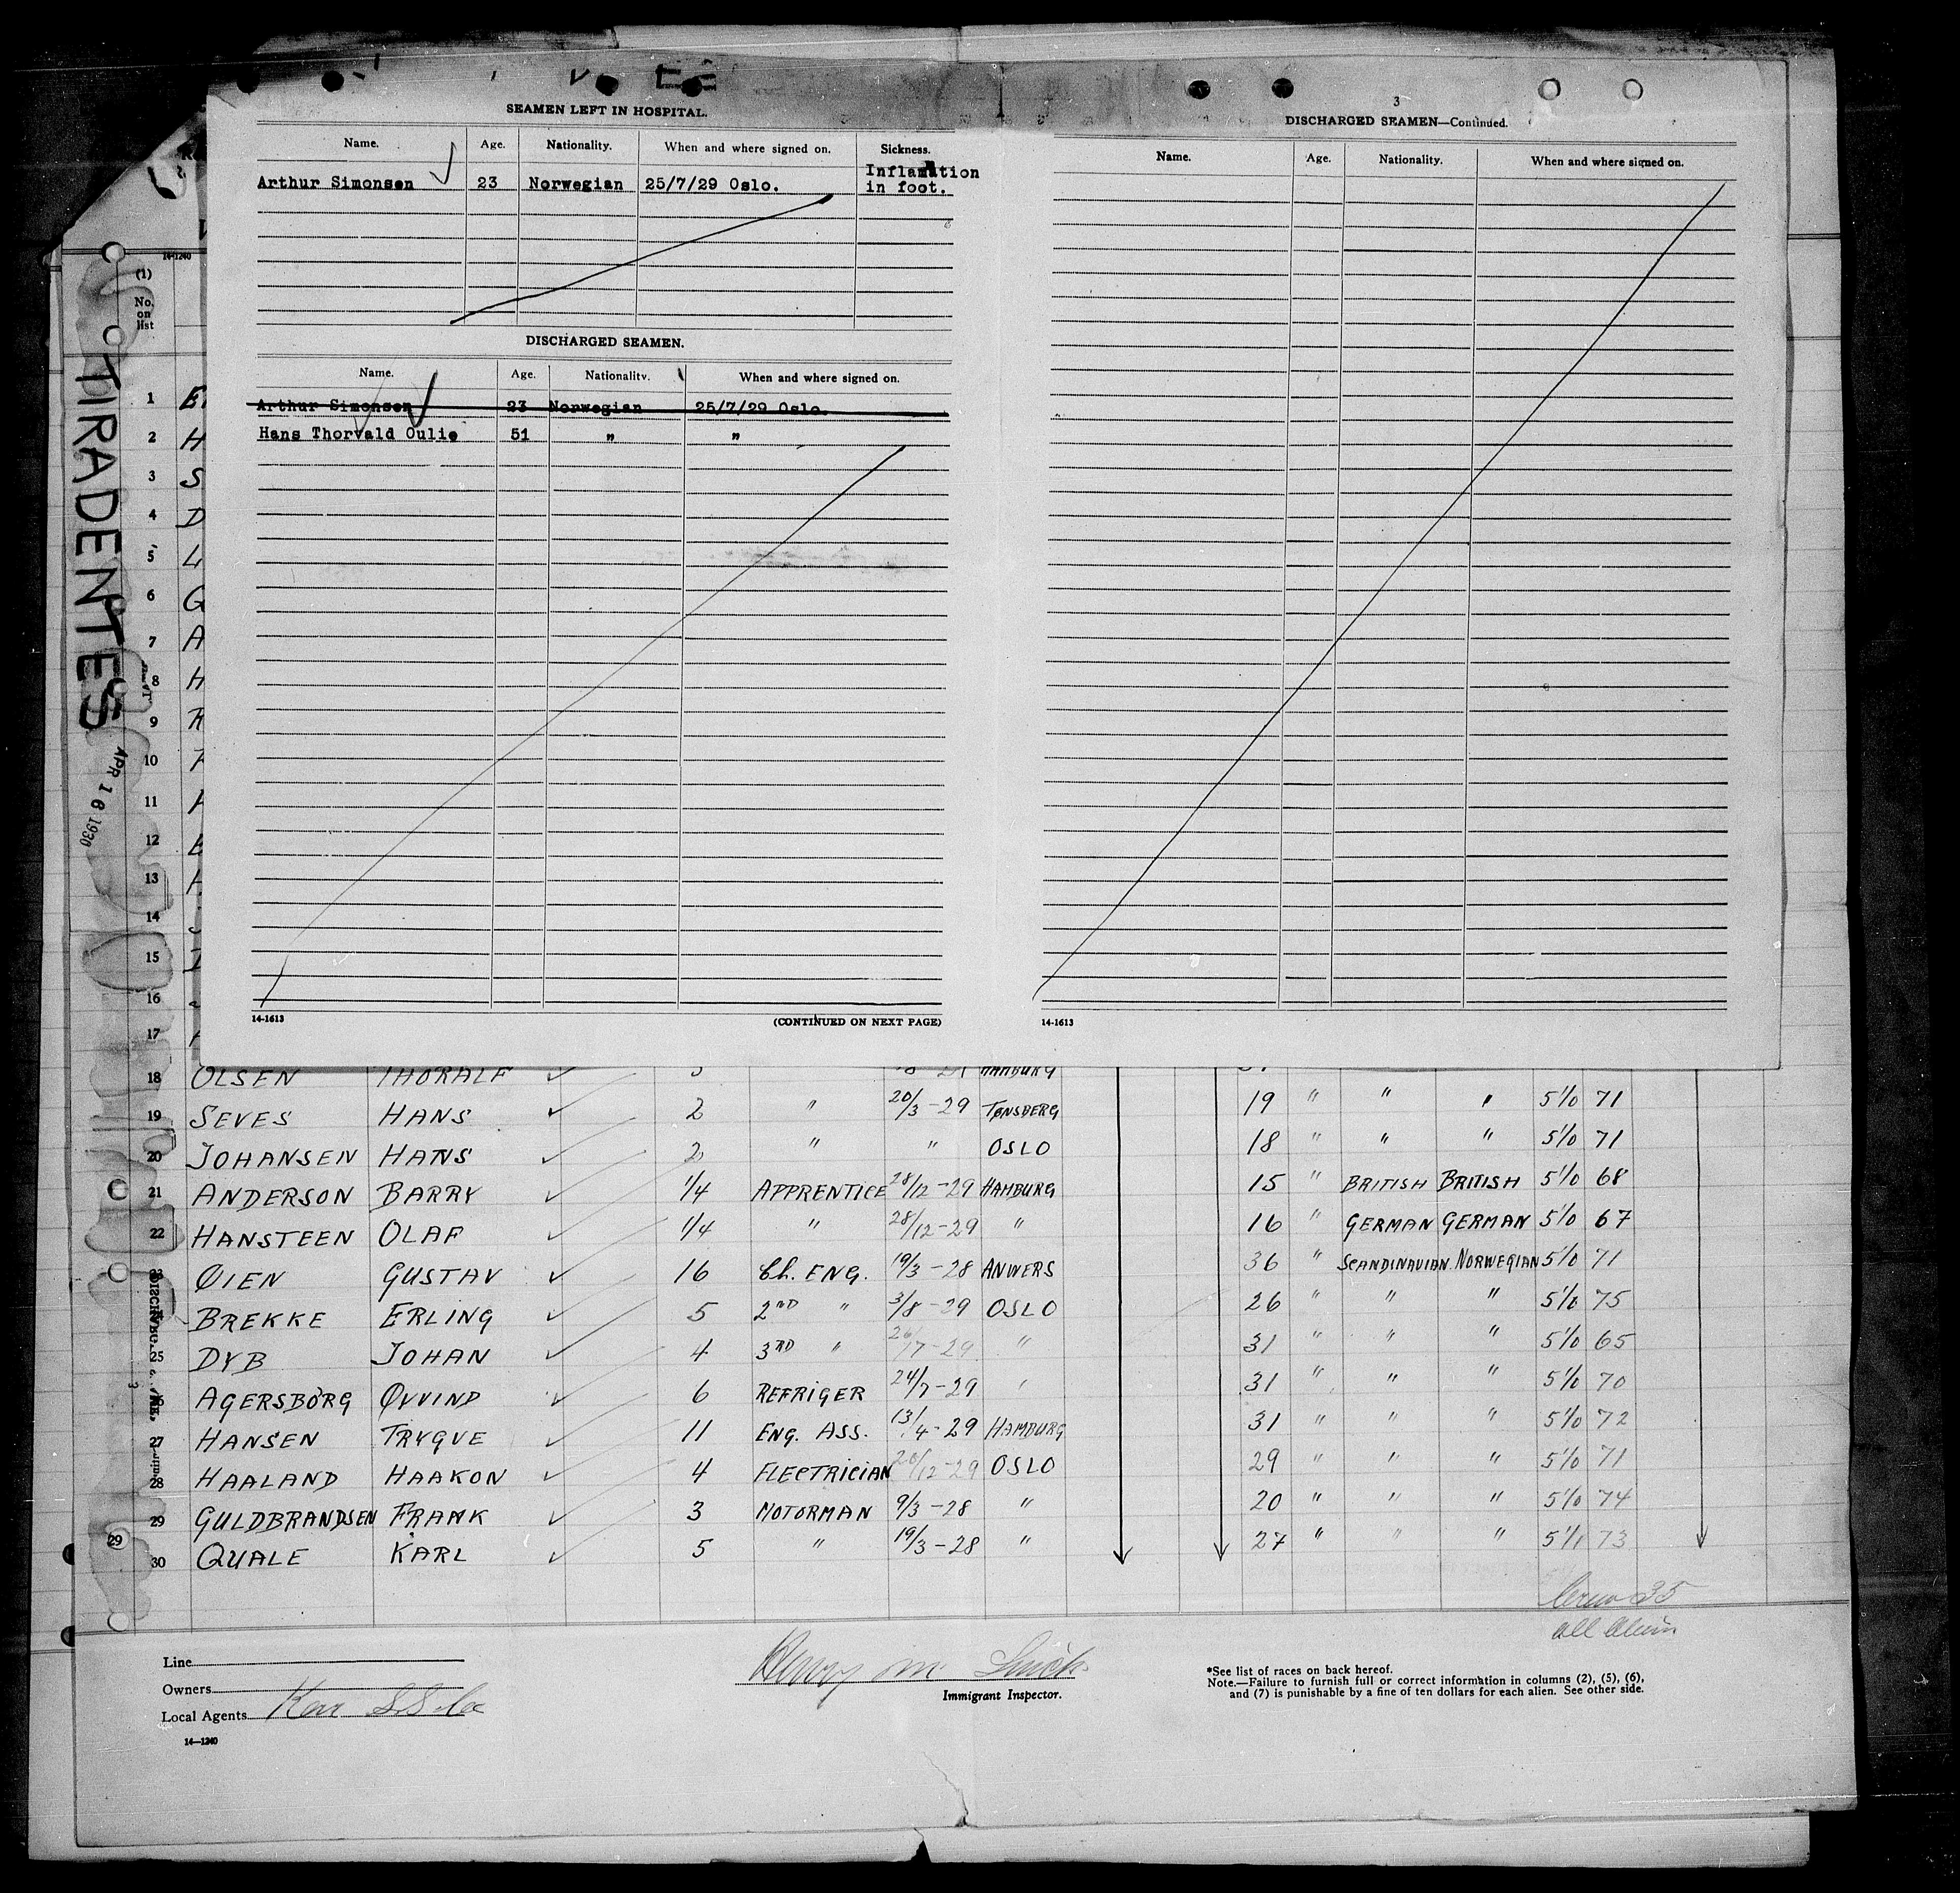 SEAMEN LEFT IN HOSPITAL.
Name. Age. Nationality. When and where signed on. Sickness.
Arthur Simonsen 23 Norwegian 25/7/29 Oslo. Inflamation in foot.
DISCHARGED SEAMEN.
Name. Age. Nationality. When and where signed on.
Arthur Simonsen 23 Norwegian 25/7/29 Oslo.
Hans Thorvald Oulie 51 " "
14-1613 (CONTINUED ON NEXT PAGE)
3
DISCHARGED SEAMEN—Continued.
Name. Age. Nationality. When and where signed on.
14-1613
TIRADENTES
APR 16 1930
14-1240
(1)
No. on list
1 E
2 H
3 S
4 D
5 L
6 G
7 A
8 H
9
10
11
12
13
14
15
16
17
18 OLSEN THORALF HAMBURG
19 SEVES HANS 2 " 20/3-29 TØNSBERG 19 " " " 5'10 71
20 JOHANSEN HANS 2 " " OSLO 18 " " " 5'10 71
21 ANDERSON BARRY 1/4 APPRENTICE 28/12-29 HAMBURG 15 " BRITISH BRITISH 5'10 68
22 HANSTEEN OLAF 1/4 " 28/12-29 " 16 " GERMAN GERMAN 5'10 67
23 ØIEN GUSTAV 16 Ch. ENG. 19/3-28 ANWERS 36 " SCANDINAVIAN NORWEGIAN 5'10 71
BREKKE ERLING 5 2ND " 3/8-29 OSLO 26 " " " 5'10 75
25 DYB JOHAN 4 3RD " 26/7-29 " 31 " " " 5'10 65
AGERSBÖRG ØYVIND 6 REFRIGER 24/7-29 " 31 " " " 5'10 70
27 HANSEN TRYGVE 11 ENG. ASS. 13/4-29 HAMBURG 31 " " " 5'10 72
28 HAALAND HAAKON 4 ELECTRICIAN 20/12-29 OSLO 29 " " " 5'10 71
29 GULDBRANDSEN FRANK 3 MOTORMAN 9/3-28 " 20 " " " 5'10 74
29
30 QUALE KARL 5 " 19/3-28 " 27 " " " 5'11 73
Crew 35
all aliens
Line
Owners
Local Agents Kerr S.S. Co
14—1240
Immigrant Inspector.
*See list of races on back hereof.
Note.—Failure to furnish full or correct information in columns (2), (5), (6),
and (7) is punishable by a fine of ten dollars for each alien. See other side.